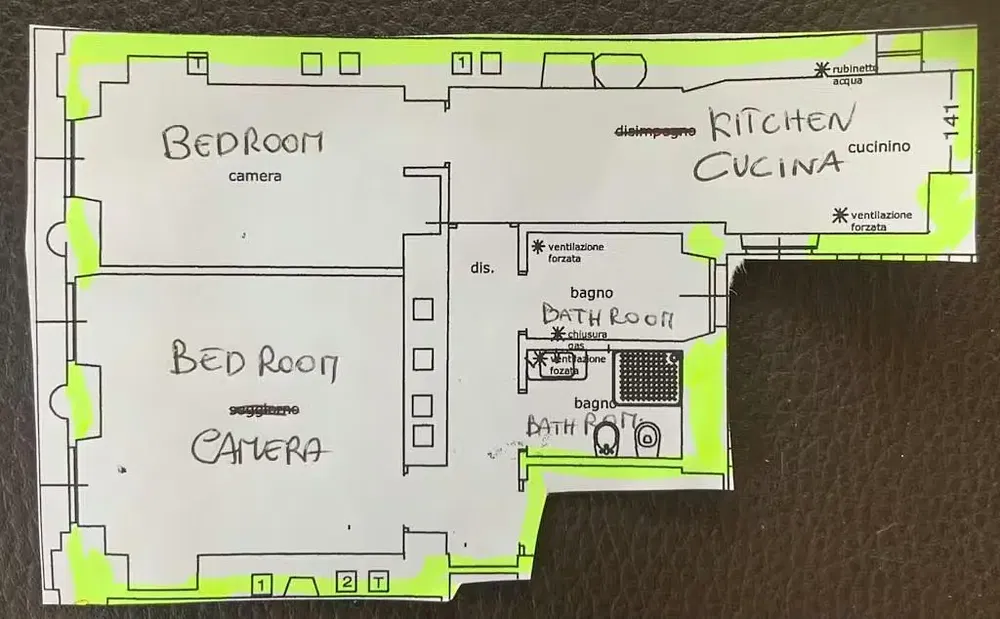 T
1
rubinetto
acqua
BEDROOM
camera
disimpegno
KITCHEN
CUCINA
cucinino
141
ventilazione
forzata
dis.
ventilazione
forzata
bagno
BATHROOM
chiusura
gas
ventilazione
fozata
bagno
BATHROOM
BEDROOM
soggiorno
CAMERA
1
2
T